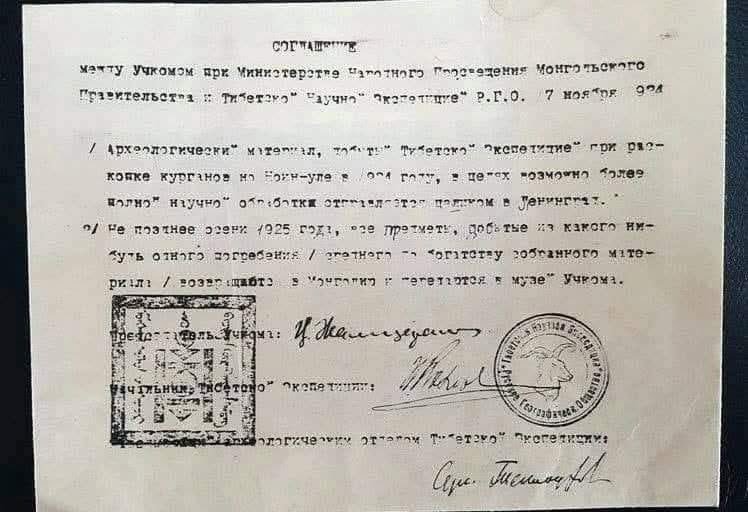 СОГЛАШЕНИЕ
между Учкомом при Министерстве Народного Просвещения Монгольского
Правительства и Тибетско" Научно" Экспедицие" Р.Г.О. 7 ноября 924
/ Археологически" материал, добыты" Тибетско" Экспедицие" при рас-
копке курганов на Ноин-уле в 1924 году, в целях возможно более
полно" научно" обработки отправляется целиком в Ленинград.
2/ Не позднее осени 1925 года, все предметы, добытые из какого ни-
будь одного погребения / среднего по богатству собранного мате-
риала / возвращаются в Монголию и передаются в музе" Учкома.
Председатель Учкома: Ц. Жамцарано
Начальник Тибетско" Экспедиции:
археологическим отделом Тибетско" Экспедиции: